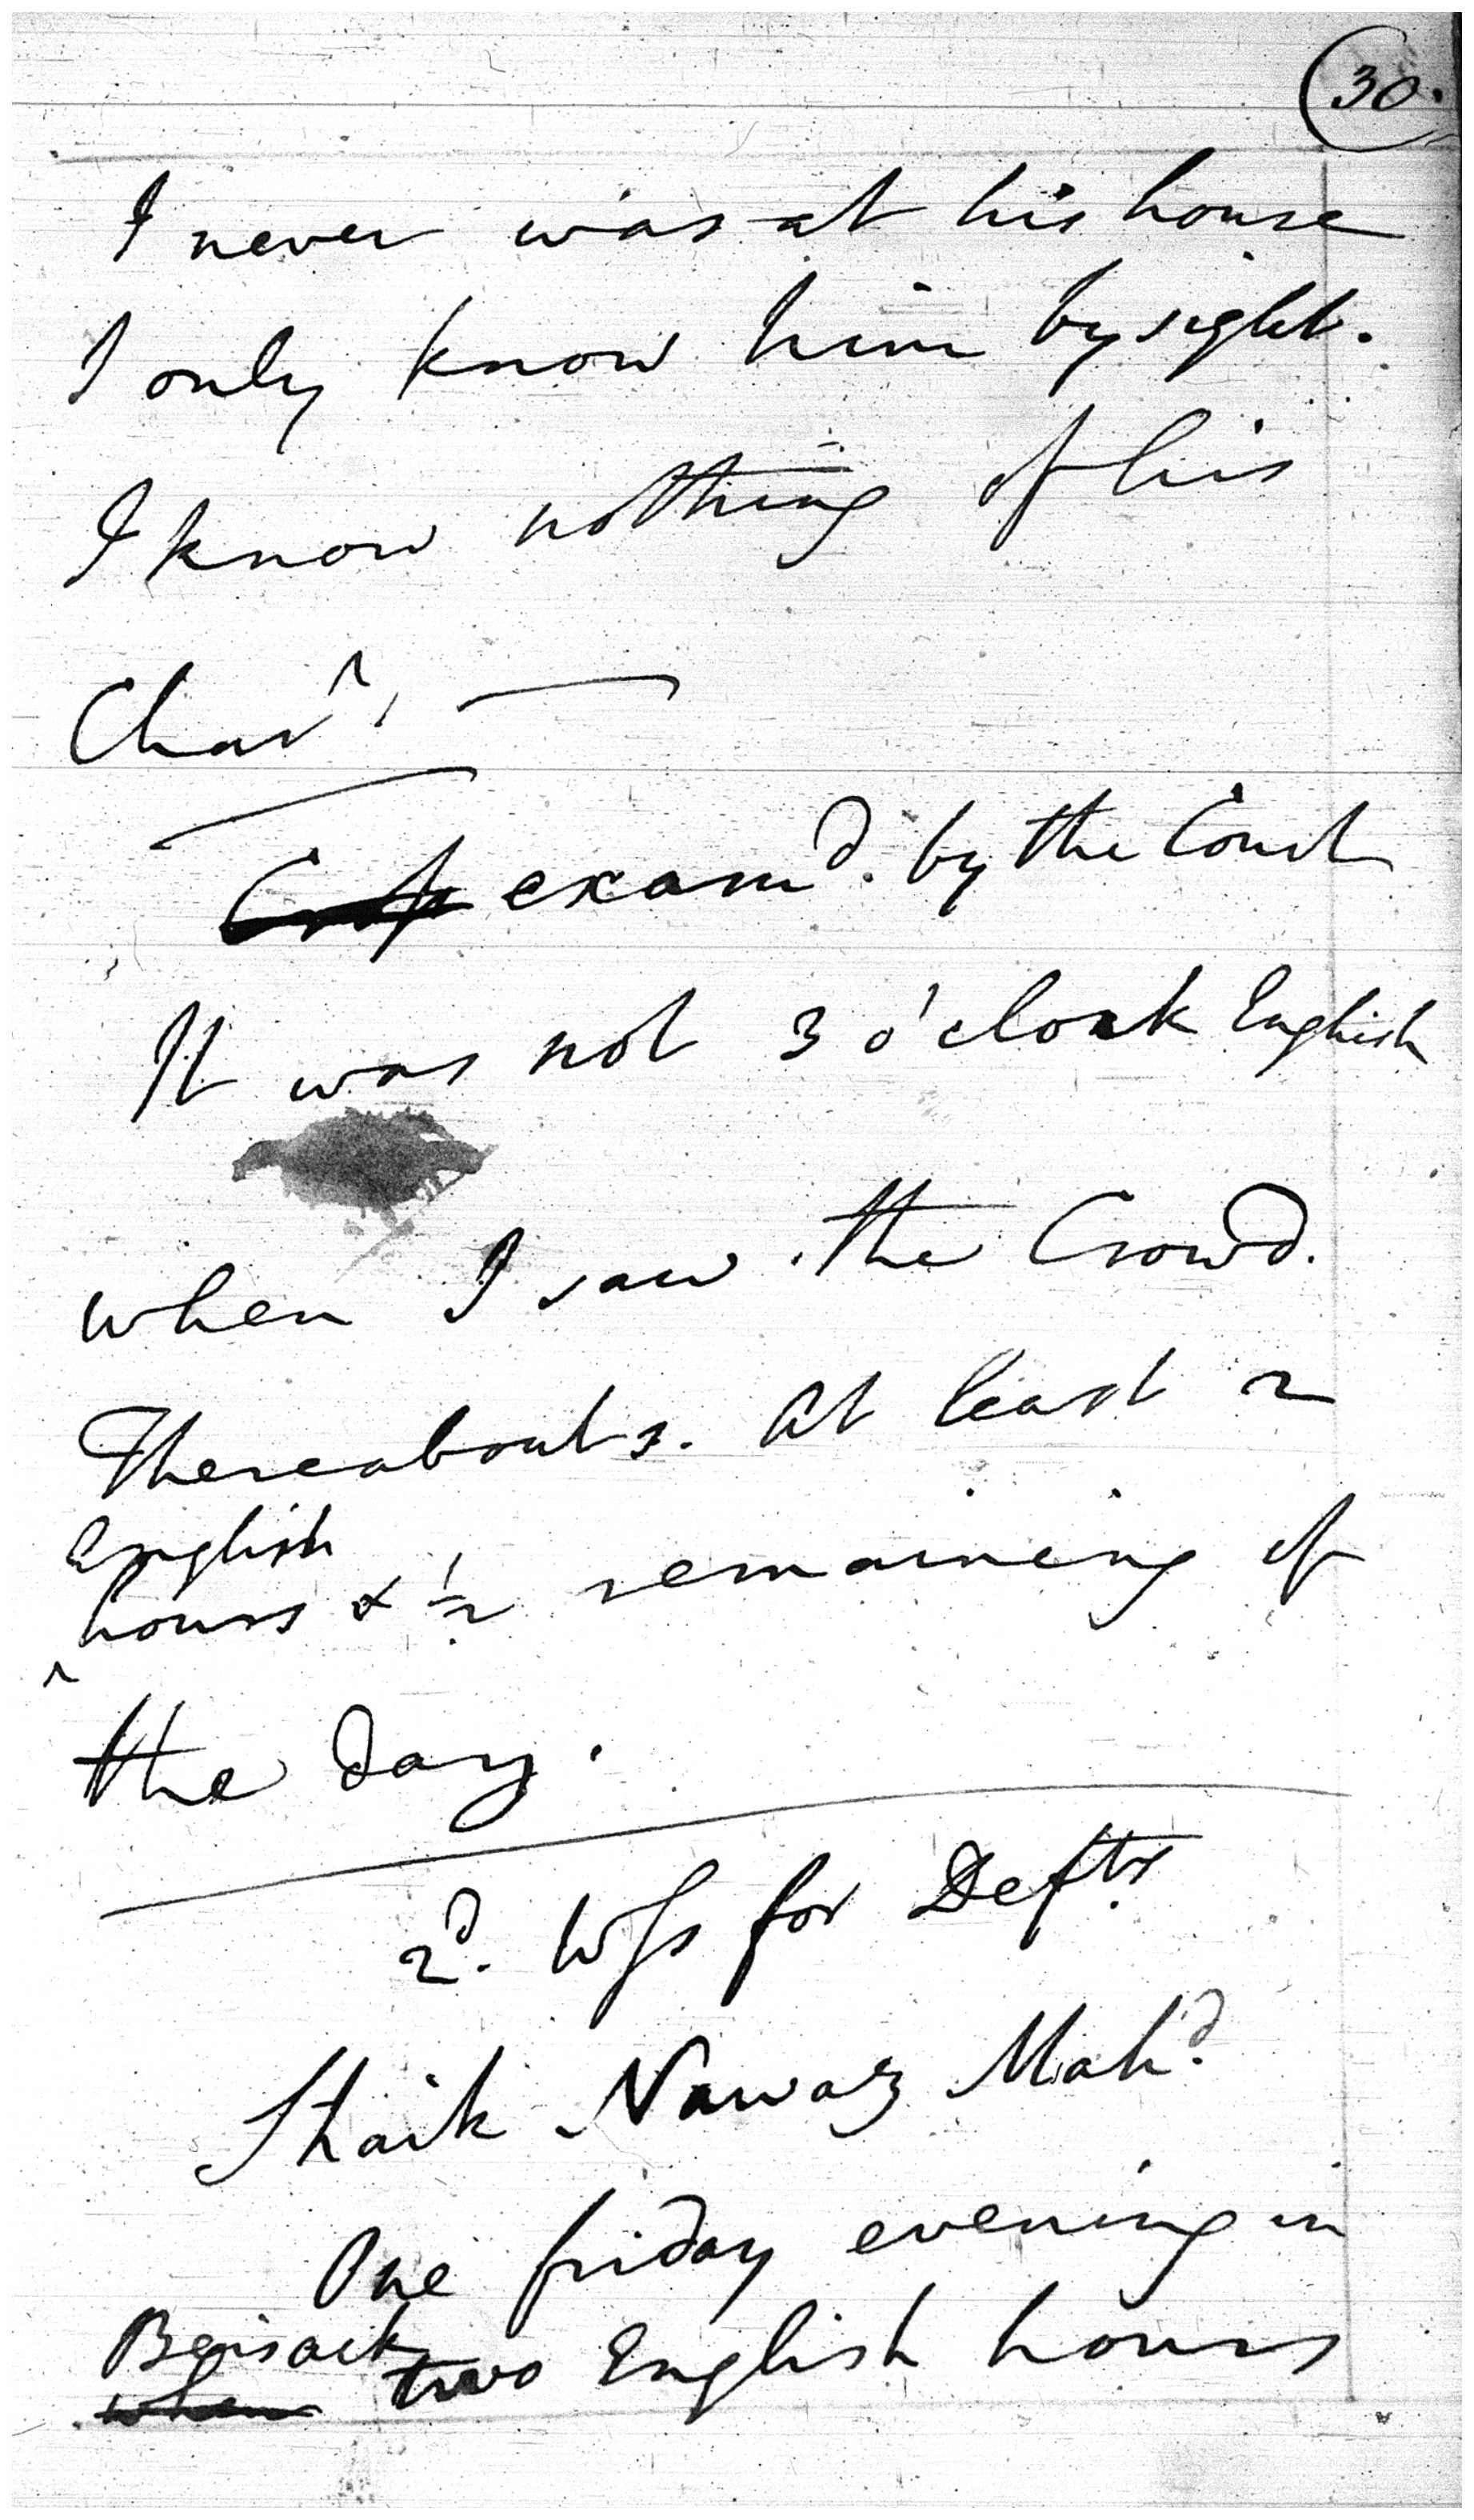 30.
I never was at his house
I only know him by sight.
I know nothing of his
Char^r.
~~Cross~~ exam^d. by the Court
It was not 3 o'clock English
when I saw the Crowd.
Thereabouts. At least 2
English
hours & 1/2 remaining of
^
the day.
2^d. Wss for Def^ts.
Shaik Nawaz Mah^d.
One friday evening in
Beisack
~~when~~ two English hours